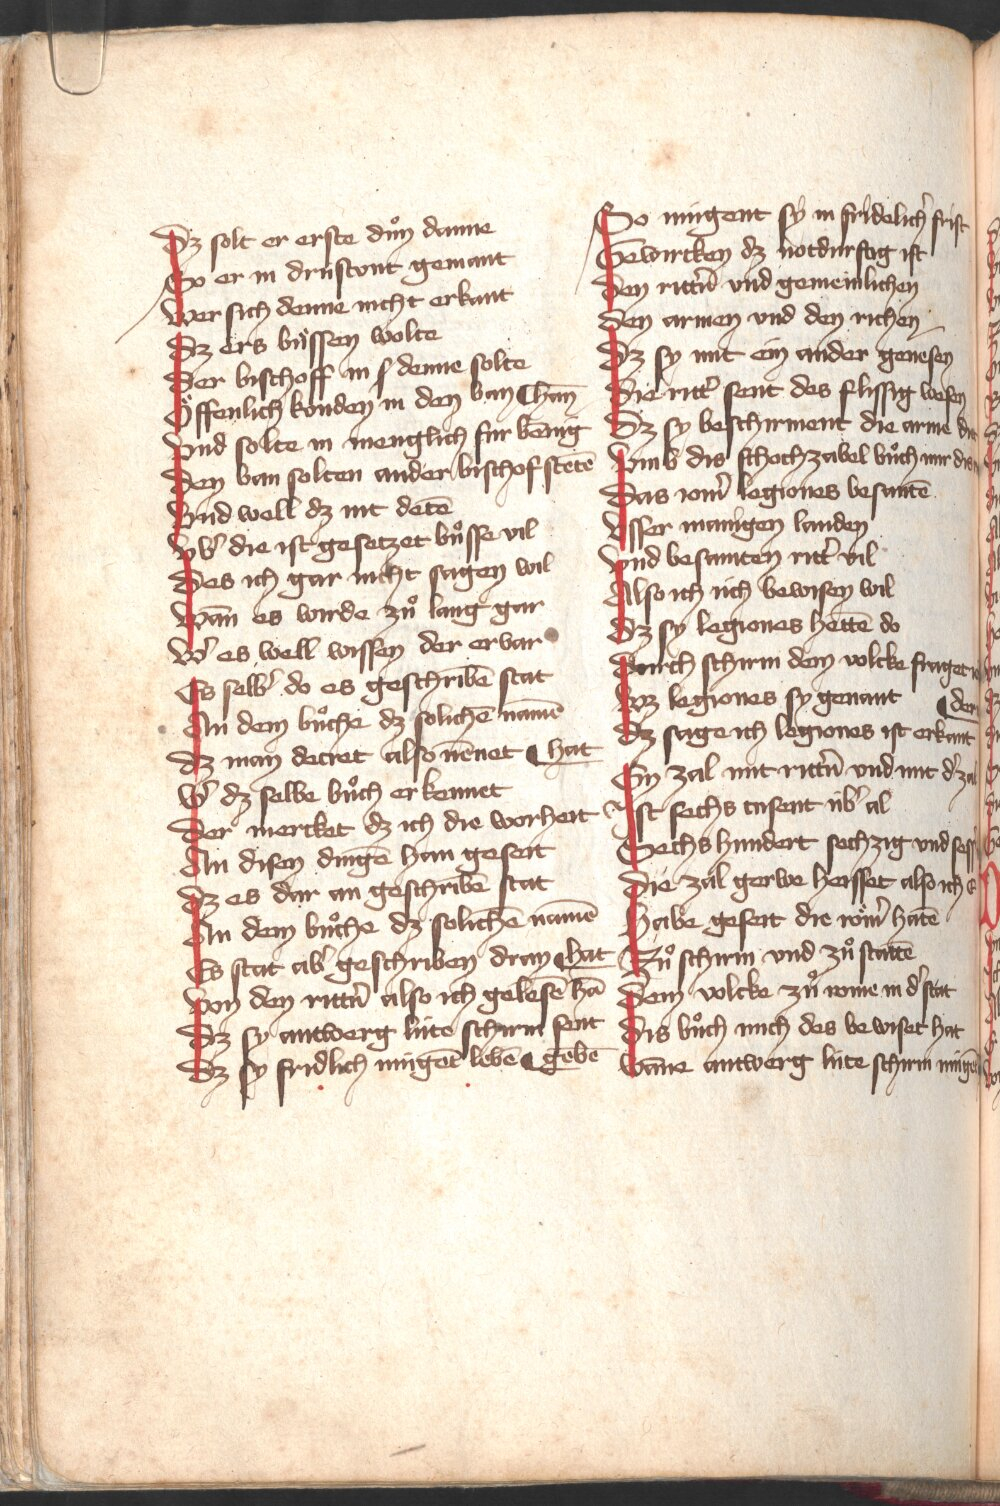 Dz solt er erste duͦn danne
So er in drustvnt gemant
Wer sich denne nicht erkant
Dz ers buͤssen wolte
Der bischoff in ſ denne solte
Offenlich konden in den ban ¶ han
Vnd solte in menglich fur bennig
Den ban solten ander bischof stetē
Vnd well dz nit detē
Vb' die ist gesetzet buͦsse vil
Des ich gar nicht sagen wil
Wan̄ es wurde zuͦ lang gar
W' es well wissen der ervar
Es selb' do es geschribē stat
An dem buͦche dz solichē namē
Dz man decret also nēnet ¶ hat
W' dz selbe buͦch erkennet
Der mercket dz ich die worheit
An disen dingē han geseit
Dz es dar an geschribē stat
An dem buͦche dz solichē namē
Es stat ab' geschriben dran ¶ hat
Von den rittn̄ also ich gelesē hā
Dz sy antwerg lúte schirm sent
Dz sy fridlich múget lebē ¶ gebē
So múgent sy in fridelich' frist
Gewircken dz notdurftig ist
Den rittn̄ vnd gemeinlichen
Den armen vnd den richen
Dz sy mit ein ander genesen
Die ritt' sent des flissig wesen
Dz sy beschirment die arme
Vmb dis schochzabel buͦch mir
Das rom' legiones besantē
Vsser manigen landen
Vnd besamten ritt' vil
Also ich úch bewisen wil
Dz sy legiones hettē do
Durch schirm dem volcke
Wz legiones sy genant ¶ der
Dz sage ich legiones ist erkant
Ein zal mit rittn̄ vnd mit d'
Ist sechs tusent úb' al
Sechs hundert sechzig vnd
Die zal gerwe heisset also ich
Habe geseit die rom' hatē
Zuͦ schirm vnd zuͦ stattē
Dem volcke zuͦ rome in d' stat
Dis buͦch mich des bewiset hat
Wāne antwerg lúte schirm